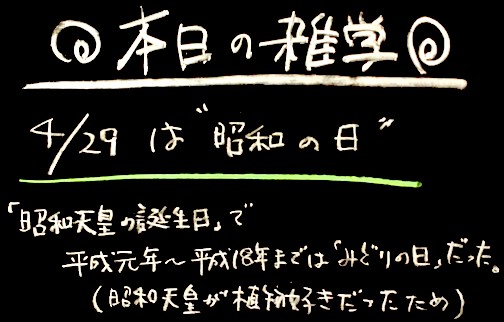 本日の雑学
4/29 は "昭和の日"
「昭和天皇の誕生日」で
平成元年～平成18年までは「みどりの日」だった。
(昭和天皇が植物好きだったため)